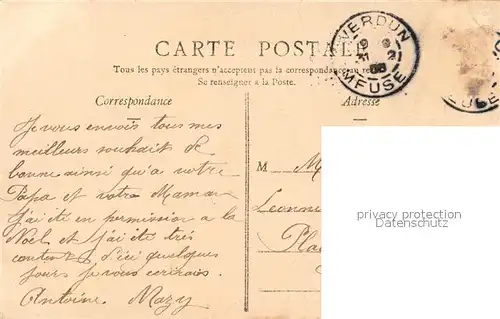 CARTE POSTALE
VERDUN
31
MEUSE
Tous les pays étrangers n'acceptent pas la correspondance au
Se renseigner à la Poste.
Correspondance
Adresse
Je vous envois tous mes
meilleurs souhait de
bonne ainsi qu'a votre
Papa et votre Maman
J'ai été en permission a la
Noël et j'ai été très
content d'ici quelques
jours je vous ecrirais.
Antoine Mazy
M
Leonne
Pla
privacy protection
Datenschutz